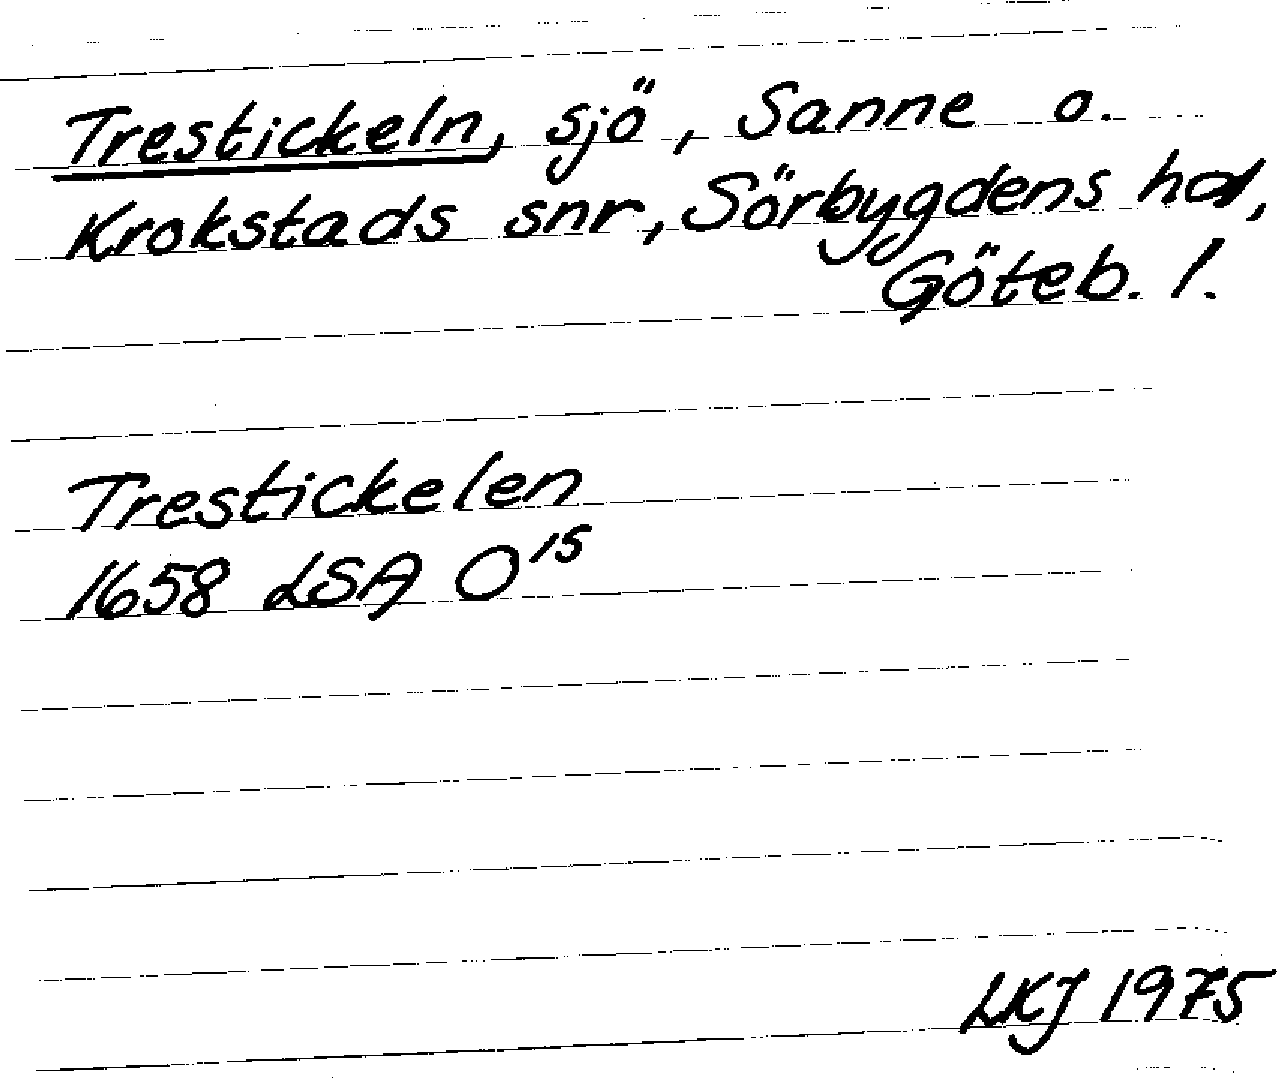 Trestickeln, sjö, Sanne o.
Krokstads snr, Sörbygdens hd,
Göteb. l.
Trestickelen
1658 LSA O15
LKJ 1975